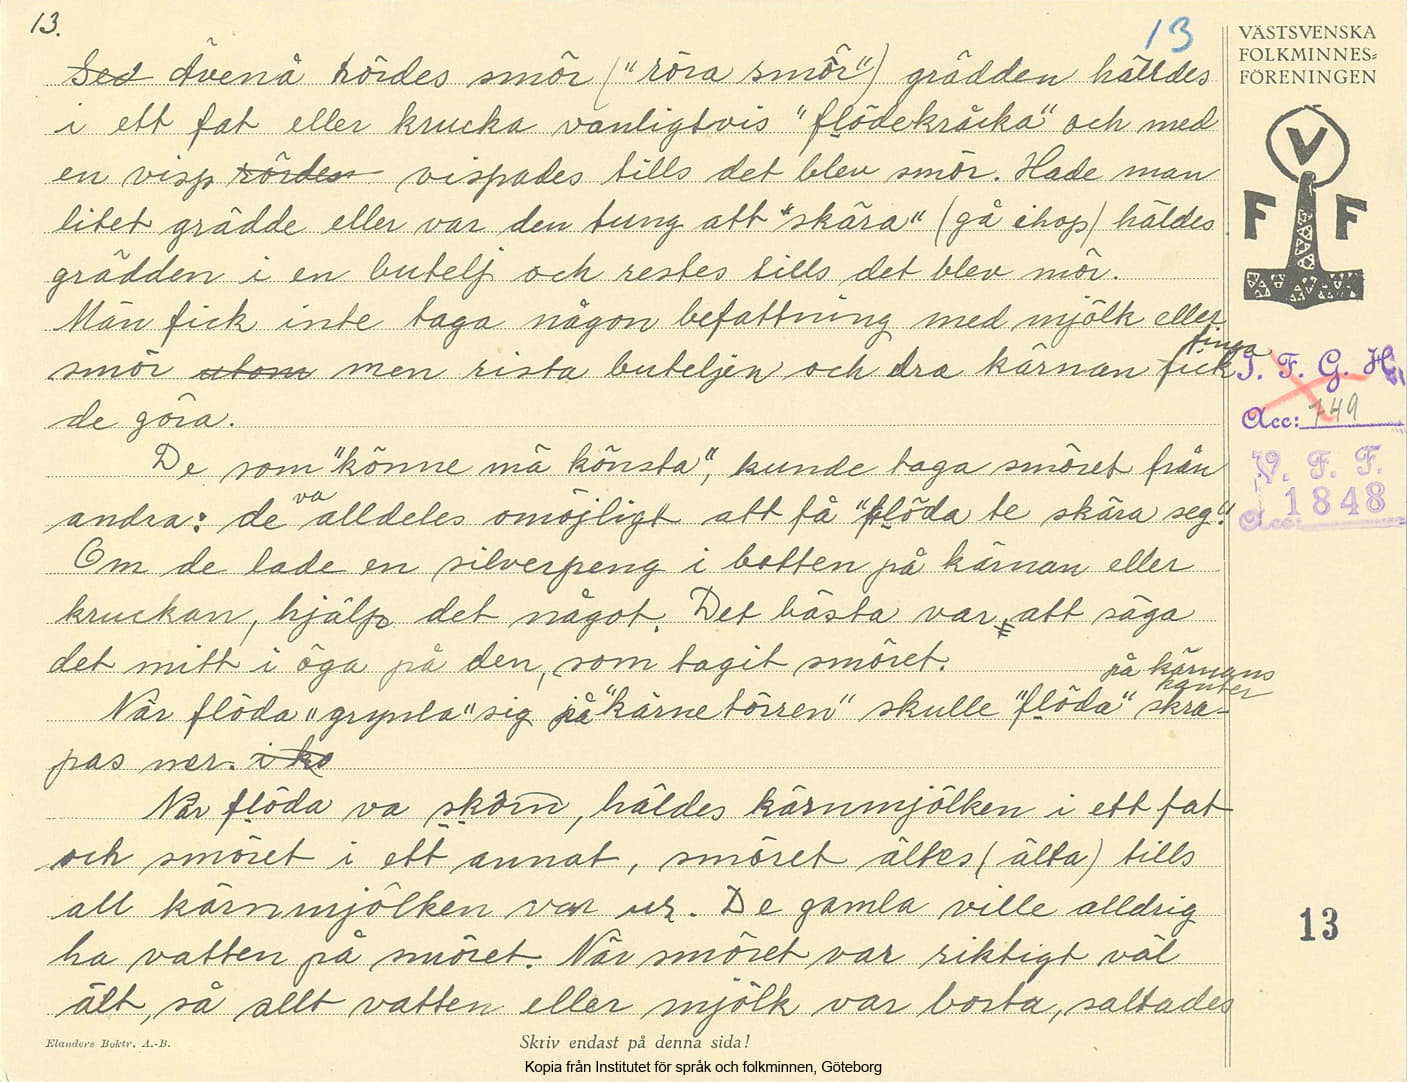 13.
13
VÄSTSVENSKA
FOLKMINNES=
FÖRENINGEN
V
F F
Sed Ävenå rördes smör ("röra smör") grädden hälldes
i ett fat eller krucka vanligtvis "flödekråcka" och med
en visp rördes vispades tills det blev smör. Hade man
litet grädde eller var den tung att "skära" (gå ihop) häldes
grädden i en butelj och restes tills det blev mör.
Män fick inte taga någon befattning med mjölk eller
smör utom men rista buteljen och dra kärnan fick
de göra.
De som "könne mä könsta", kunde taga smöret från
andra: de va alldeles omöjligt att få "flöda te skära seg".
Om de lade en silverpeng i botten på kärnan eller
kruckan, hjälp det något. Det bästa var, att säga
det mitt i öga på den, som tagit smöret.
När flöda "grynla" sig på "kärnetörren" skulle "flöda" skra-
på kärnans
kanter
pas ner. i ko
När flöda va skörn, häldes kärnmjölken i ett fat
och smöret i ett annat, smöret ältes (älta) tills
all kärnmjölken var ur. De gamla ville alldrig
ha vatten på smöret. När smöret var riktigt väl
ält, så allt vatten eller mjölk var borta, saltades
I. F. G. H.
Acc: 749
V. F. F.
Acc: 1848
13
Elanders Boktr. A.-B.
Skriv endast på denna sida!
Kopia från Institutet för språk och folkminnen, Göteborg